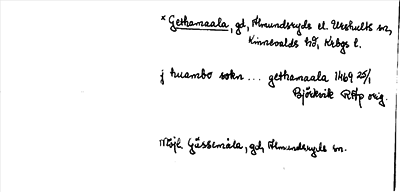 * Gethamaala, gd, Älmundsryds el. Urshults sn,
Kinnevalds hd, Krbgs l.
j huambo sokn ... gethamaala 1469 25/1
Björkvik RAp orig.
Möjl. Gässemåla, gd, Älmundsryds sn.